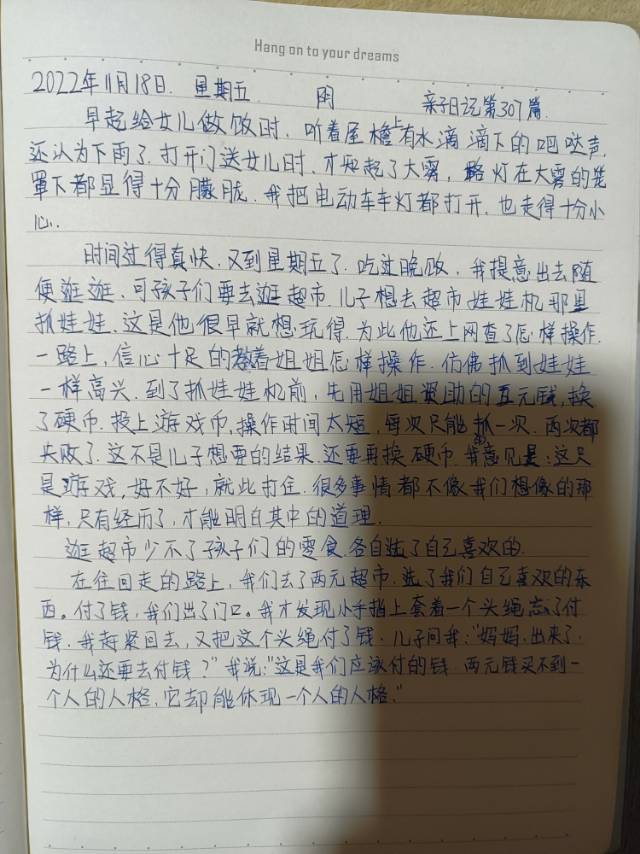 Hang on to your dreams
2022年11月18日. 星期五 阴 亲子日记第307篇.
早起给女儿做饭时, 听着屋檐上有水滴滴下的吧哒声,
还认为下雨了. 打开门送女儿时. 才知起了大雾, 路灯在大雾的笼
罩下都显得十分朦胧. 我把电动车车灯都打开. 也走得十分小
心.
时间过得真快. 又到星期五了. 吃过晚饭, 我提意出去随
便逛逛. 可孩子们要去逛超市. 儿子想去超市娃娃机那里
抓娃娃. 这是他很早就想玩得. 为此他还上网查了怎样操作.
一路上, 信心十足的教着姐姐怎样操作. 仿佛抓到娃娃
一样高兴. 到了抓娃娃机前, 先用姐姐资助的五元钱, 换
了硬币. 投上游戏币, 操作时间太短, 每次只能抓一次. 两次都
失败了. 这不是儿子想要的结果. 还要再换硬币. 我的意见是: 这只
是游戏, 好不好, 就此打住. 很多事情都不像我们想像的那
样, 只有经历了, 才能明白其中的道理.
逛超市少不了孩子们的零食. 各自选了自己喜欢的.
在往回走的路上, 我们去了两元超市. 选了我们自己喜欢的东
西。付了钱, 我们出了门口。我才发现小手指上套着一个头绳忘了付
钱. 我赶紧回去, 又把这个头绳付了钱. 儿子问我: "妈妈, 出来了,
为什么还要去付钱?" 我说: "这是我们应该付的钱. 两元钱买不到一
个人的人格, 它却能体现一个人的人格."